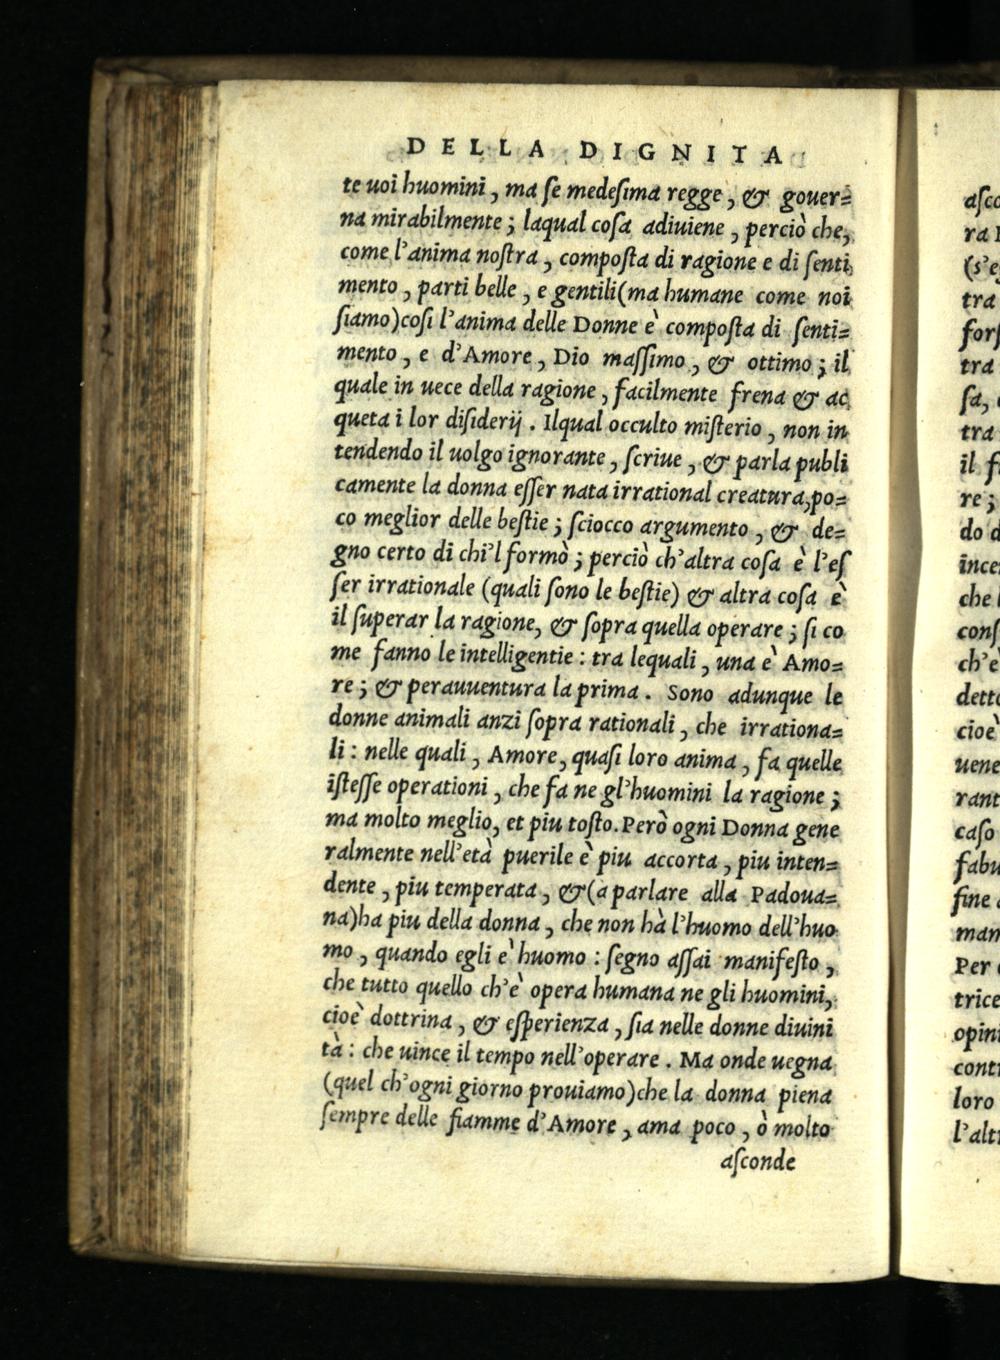 DELLA DIGNITA
te uoi huomini, ma ſe medeſima regge, & gouer=
na mirabilmente; laqual coſa adiuiene, perciò che,
come l'anima noſtra, compoſta di ragione e di ſenti
mento, parti belle, e gentili(ma humane come noi
ſiamo)coſi l'anima delle Donne è compoſta di ſenti=
mento, e d'Amore, Dio maſſimo, & ottimo; il
quale in uece della ragione, facilmente frena & ac
queta i lor diſiderij. Ilqual occulto miſterio, non in
tendendo il uolgo ignorante, ſcriue, & parla publi
camente la donna eſſer nata irrational creatura,po=
co meglior delle beſtie; ſciocco argumento, & de=
gno certo di chi'l formò; perciò ch'altra coſa è l'eſ
ſer irrationale (quali ſono le beſtie) & altra coſa è
il ſuperar la ragione, & ſopra quella operare; ſi co
me fanno le intelligentie: tra lequali, una è Amo=
re; & perauuentura la prima. Sono adunque le
donne animali anzi ſopra rationali, che irrationa=
li: nelle quali, Amore, quaſi loro anima, fa quelle
iſteſſe operationi, che fa ne gl'huomini la ragione;
ma molto meglio, et piu toſto. Però ogni Donna gene
ralmente nell'età puerile è piu accorta, piu inten=
dente, piu temperata, &(a parlare alla Padoua=
na)ha piu della donna, che non hà l'huomo dell'huo
mo, quando egli è huomo: ſegno aſſai manifeſto,
che tutto quello ch'è opera humana ne gli huomini,
cioè dottrina, & eſperienza, ſia nelle donne diuini
tà: che uince il tempo nell'operare. Ma onde uegna
(quel ch'ogni giorno prouiamo)che la donna piena
ſempre delle fiamme d'Amore, ama poco, ò molto
aſconde
aſco
ra
(s'eg
tra
forſ
tra
ſa,
tra
il
re;
do
ince
che
conſ
ch'è
detto
cioè
uene
rant
caſo
fabu
fine
man
Per
trice
opini
cont
loro
l'alt